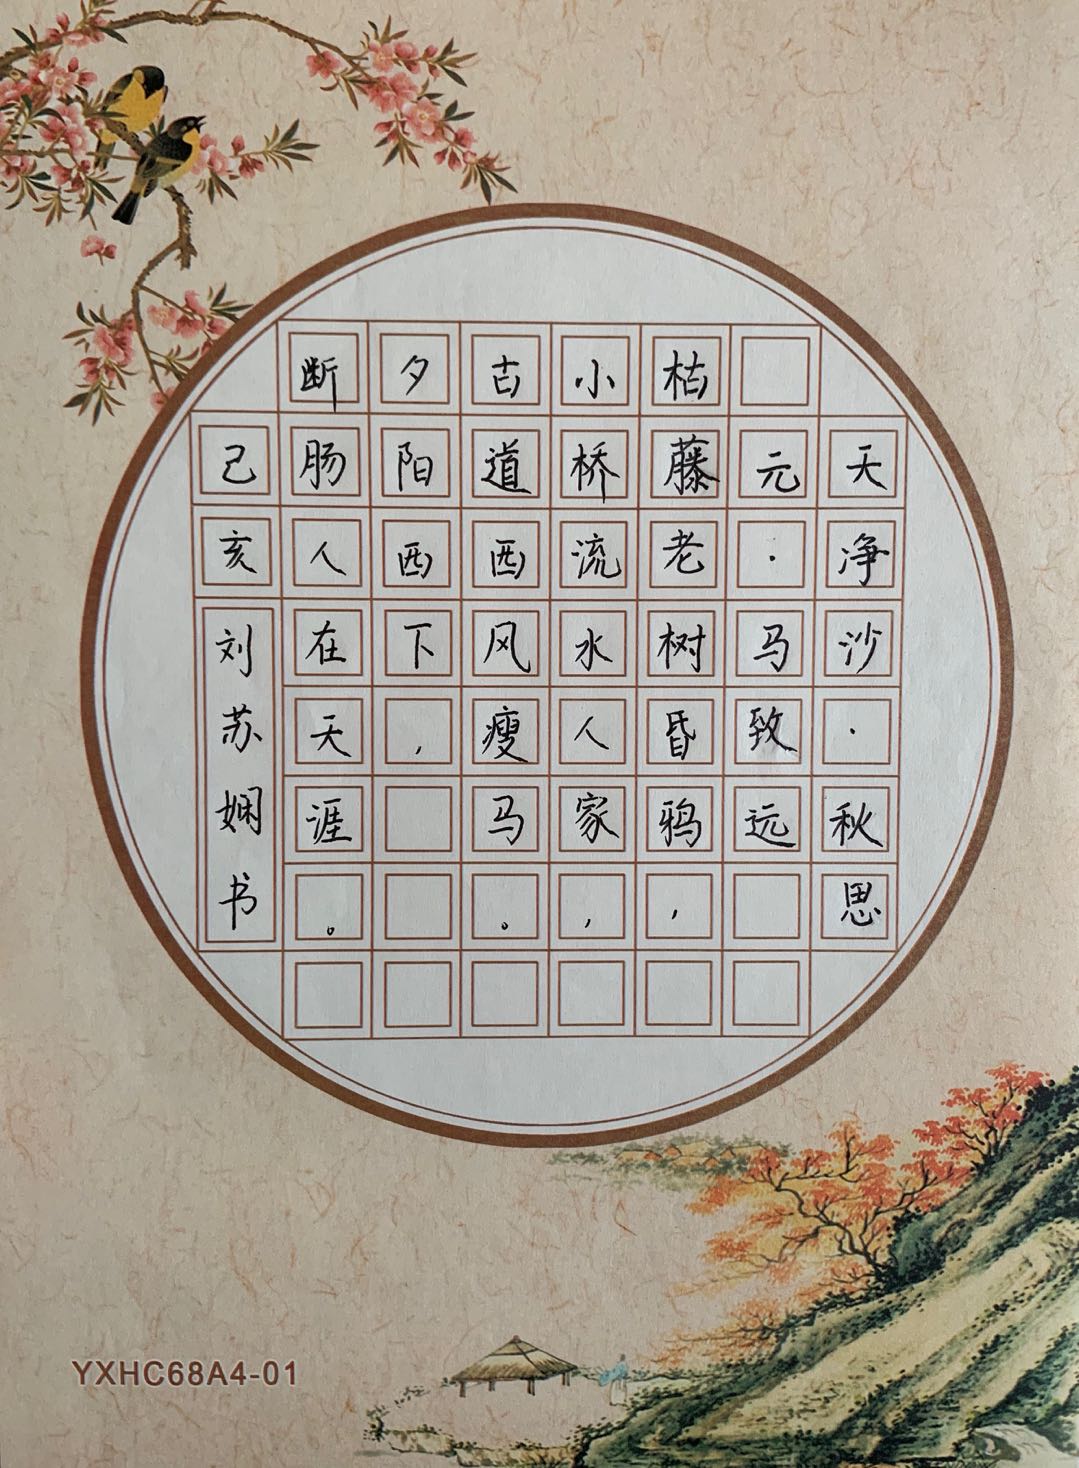 天净沙·秋思
元·马致远
枯藤老树昏鸦，
小桥流水人家，
古道西风瘦马。
夕阳西下，
断肠人在天涯。
己亥
刘苏娴书
YXHC68A4-01